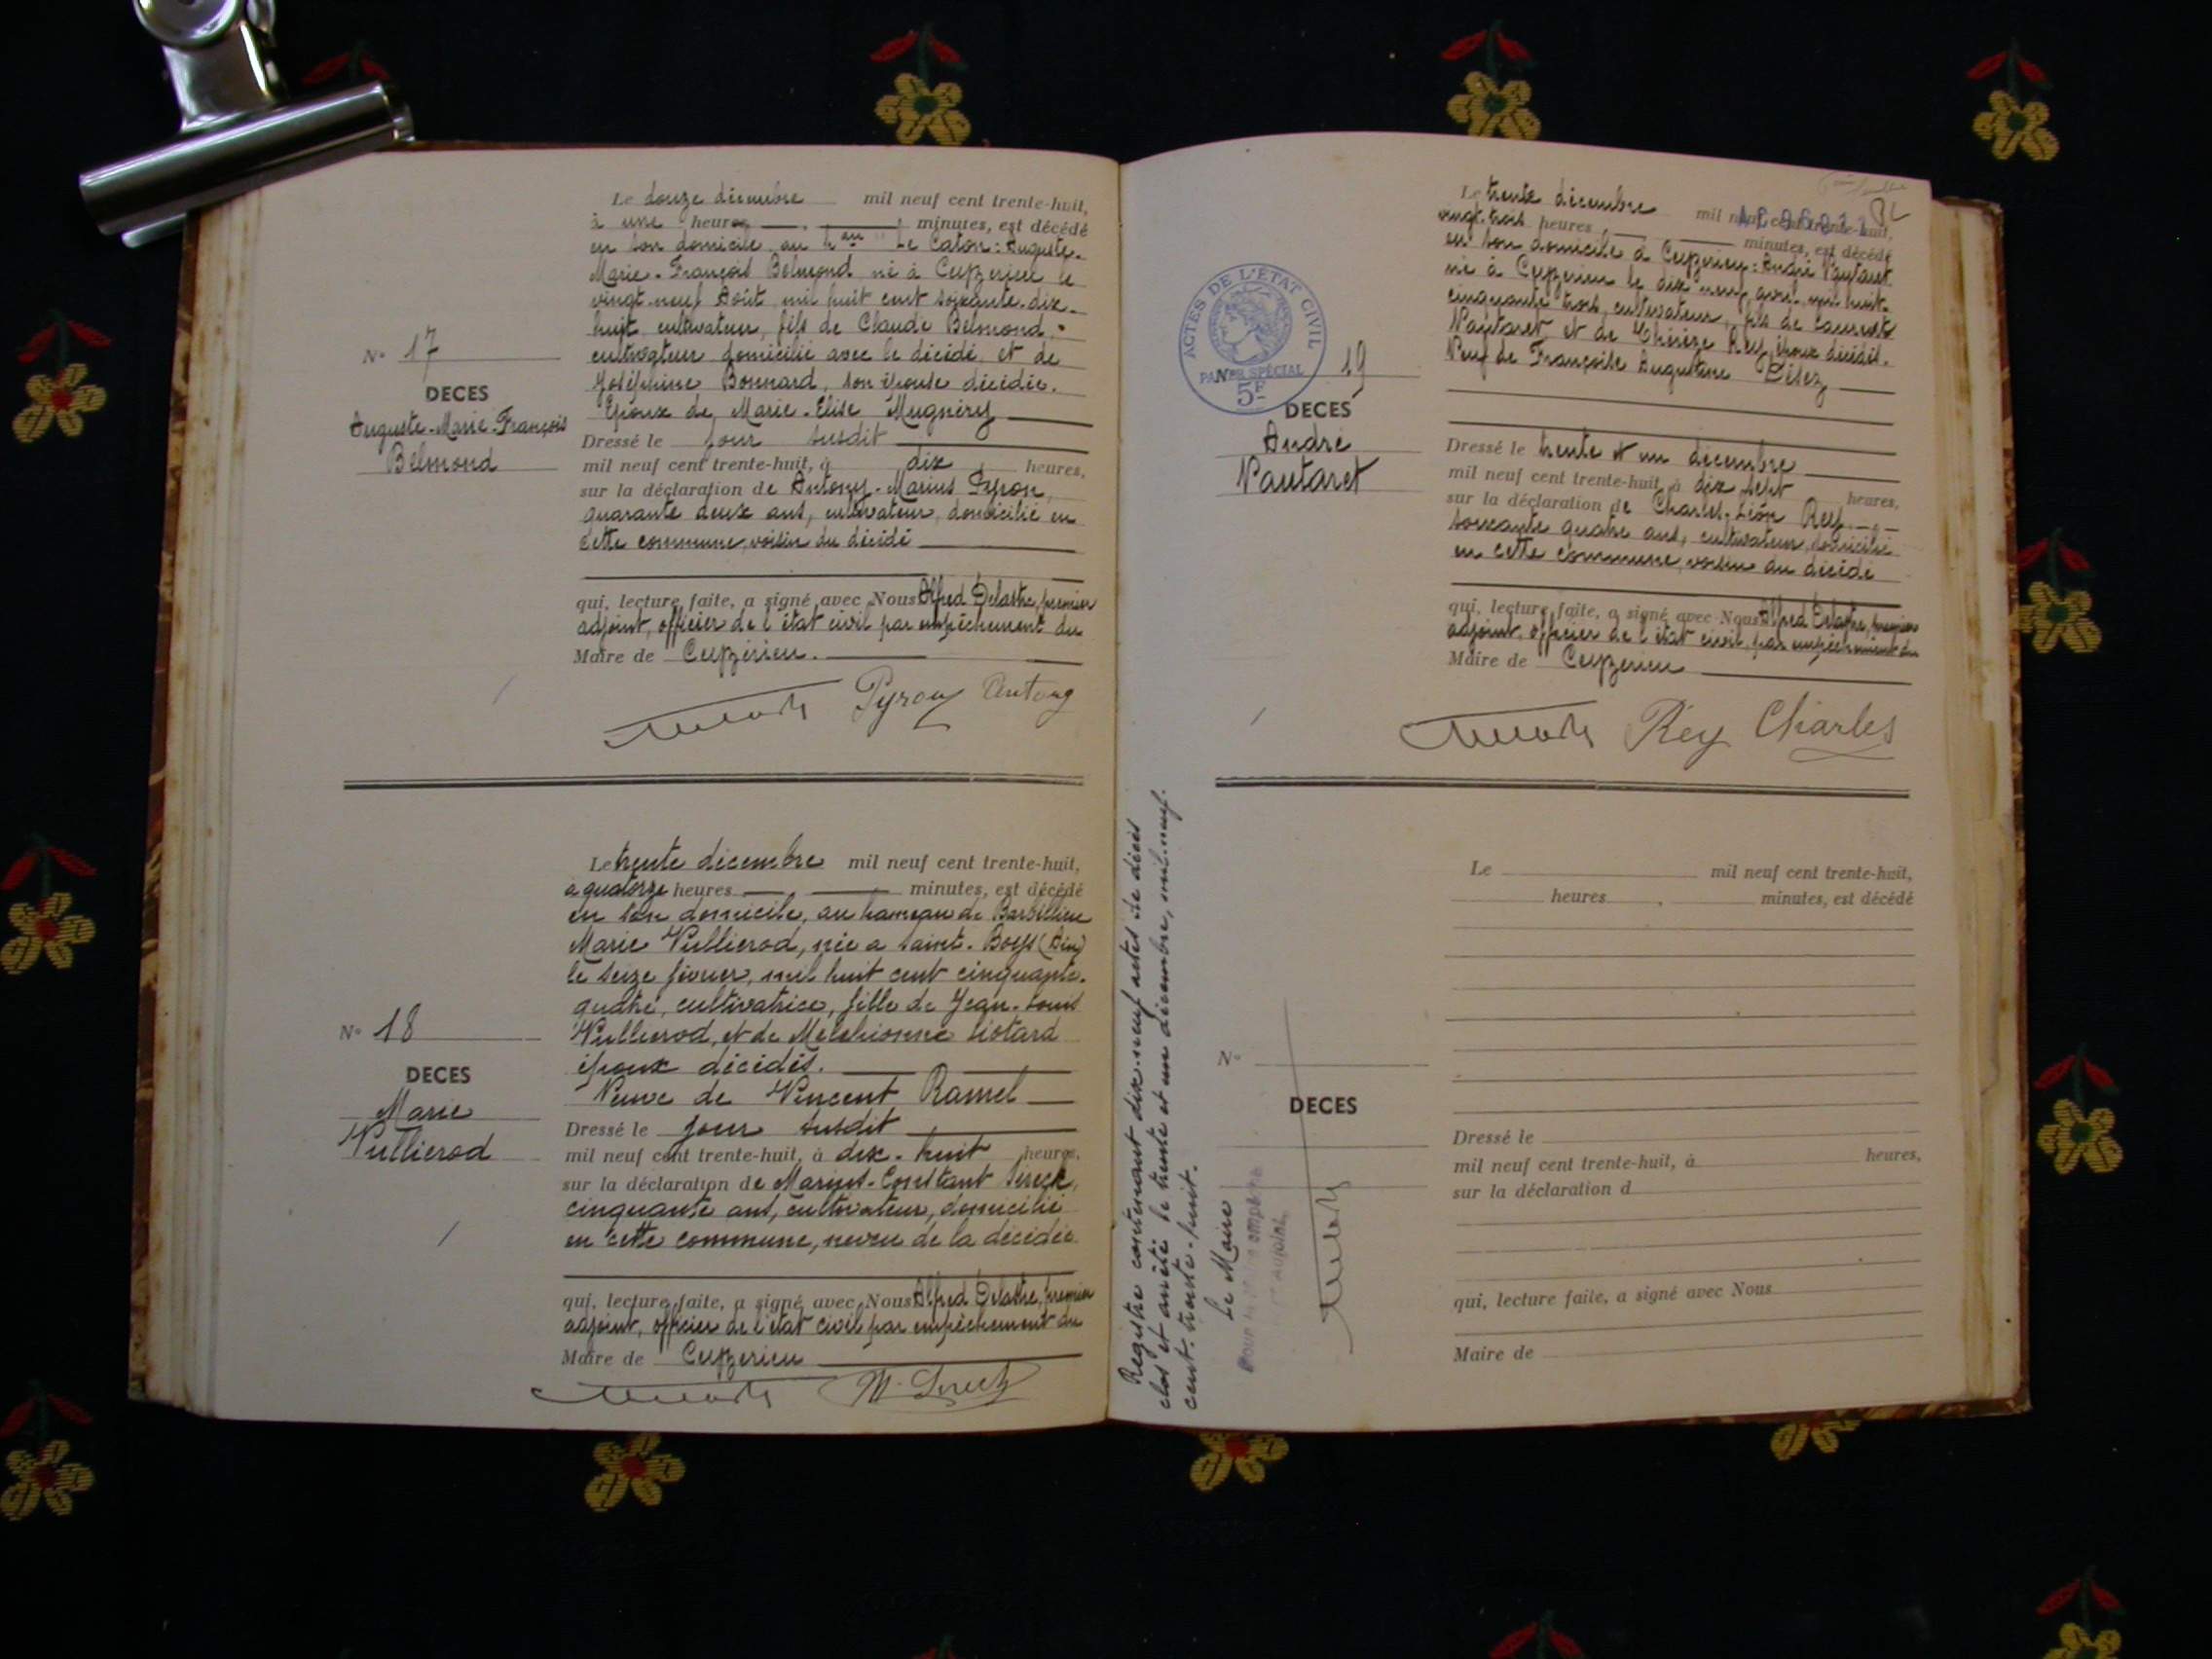 Le douze décembre mil neuf cent trente-huit,
à une heures minutes, est décédé
en son domicile au h.au Le Caton: Auguste-
Marie-François Belmond né à Ceyzerieu le
vingt-neuf Août mil huit cent soixante-dix-
huit, cultivateur, fils de Claude Belmond
cultivateur domicilié avec le décédé et de
Joséphine Bonnard, son épouse décédée.
Epoux de Marie-Elise Mugnéry
N° 17
DECES
Auguste-Marie-François
Belmond
Dressé le jour susdit
mil neuf cent trente-huit, à dix heures,
sur la déclaration de Antony-Marius Pyron,
quarante deux ans, cultivateur, domicilié en
cette commune, voisin du décédé
qui, lecture faite, a signé avec Nous Alfred Delastre, premier
adjoint, officier de l'état civil par empêchement du
Maire de Ceyzerieu.
Pyron Antony
Le trente décembre mil neuf cent trente-huit,
à quatorze heures minutes, est décédé
en son domicile, au hameau de
Marie Vullierod, née à Saint-Boys (Ain)
le seize février, mil huit cent cinquante-
quatre, cultivatrice, fille de Jean-Louis
Vullierod, et de Melchionne Liotard
époux décédés.
Veuve de Vincent Ramel
N° 18
DECES
Marie
Vullierod
Dressé le jour susdit
mil neuf cent trente-huit, à dix-huit heures,
sur la déclaration de Marius-Constant Sereck,
cinquante ans, cultivateur, domicilié
en cette commune, neveu de la décédée
qui, lecture faite, a signé avec Nous Alfred Delastre, premier
adjoint, officier de l'état civil par empêchement du
Maire de Ceyzerieu
Le trente décembre mil neuf cent trente-huit,
vingt-trois heures minutes, est décédé
en son domicile à Ceyzerieu: André Vautaret
né à Ceyzerieu le dix neuf avril mil huit-
cinquante trois, cultivateur, fils de Laurent
Vautaret et de Thérèze Rey, époux décédés.
Veuf de Françoise Augustine
ACTES DE L'ETAT CIVIL
PAPIER SPÉCIAL
5F
N° 19
DECES
André
Vautaret
Dressé le trente et un décembre
mil neuf cent trente-huit, à dix sept heures,
sur la déclaration de Charles-Léon Rey
soixante quatre ans, cultivateur, domicilié
en cette commune, voisin du décédé
qui, lecture faite, a signé avec Nous Alfred Delastre, premier
adjoint, officier de l'état civil par empêchement du
Maire de Ceyzerieu
Rey Charles
Registre contenant dix-neuf actes de décès
clos et arrêté le trente et un décembre, mil neuf-
cent-trente-huit.
Le Maire
Le mil neuf cent trente-huit,
heures minutes, est décédé
N°
DECES
Dressé le
mil neuf cent trente-huit, à heures,
sur la déclaration d
qui, lecture faite, a signé avec Nous
Maire de